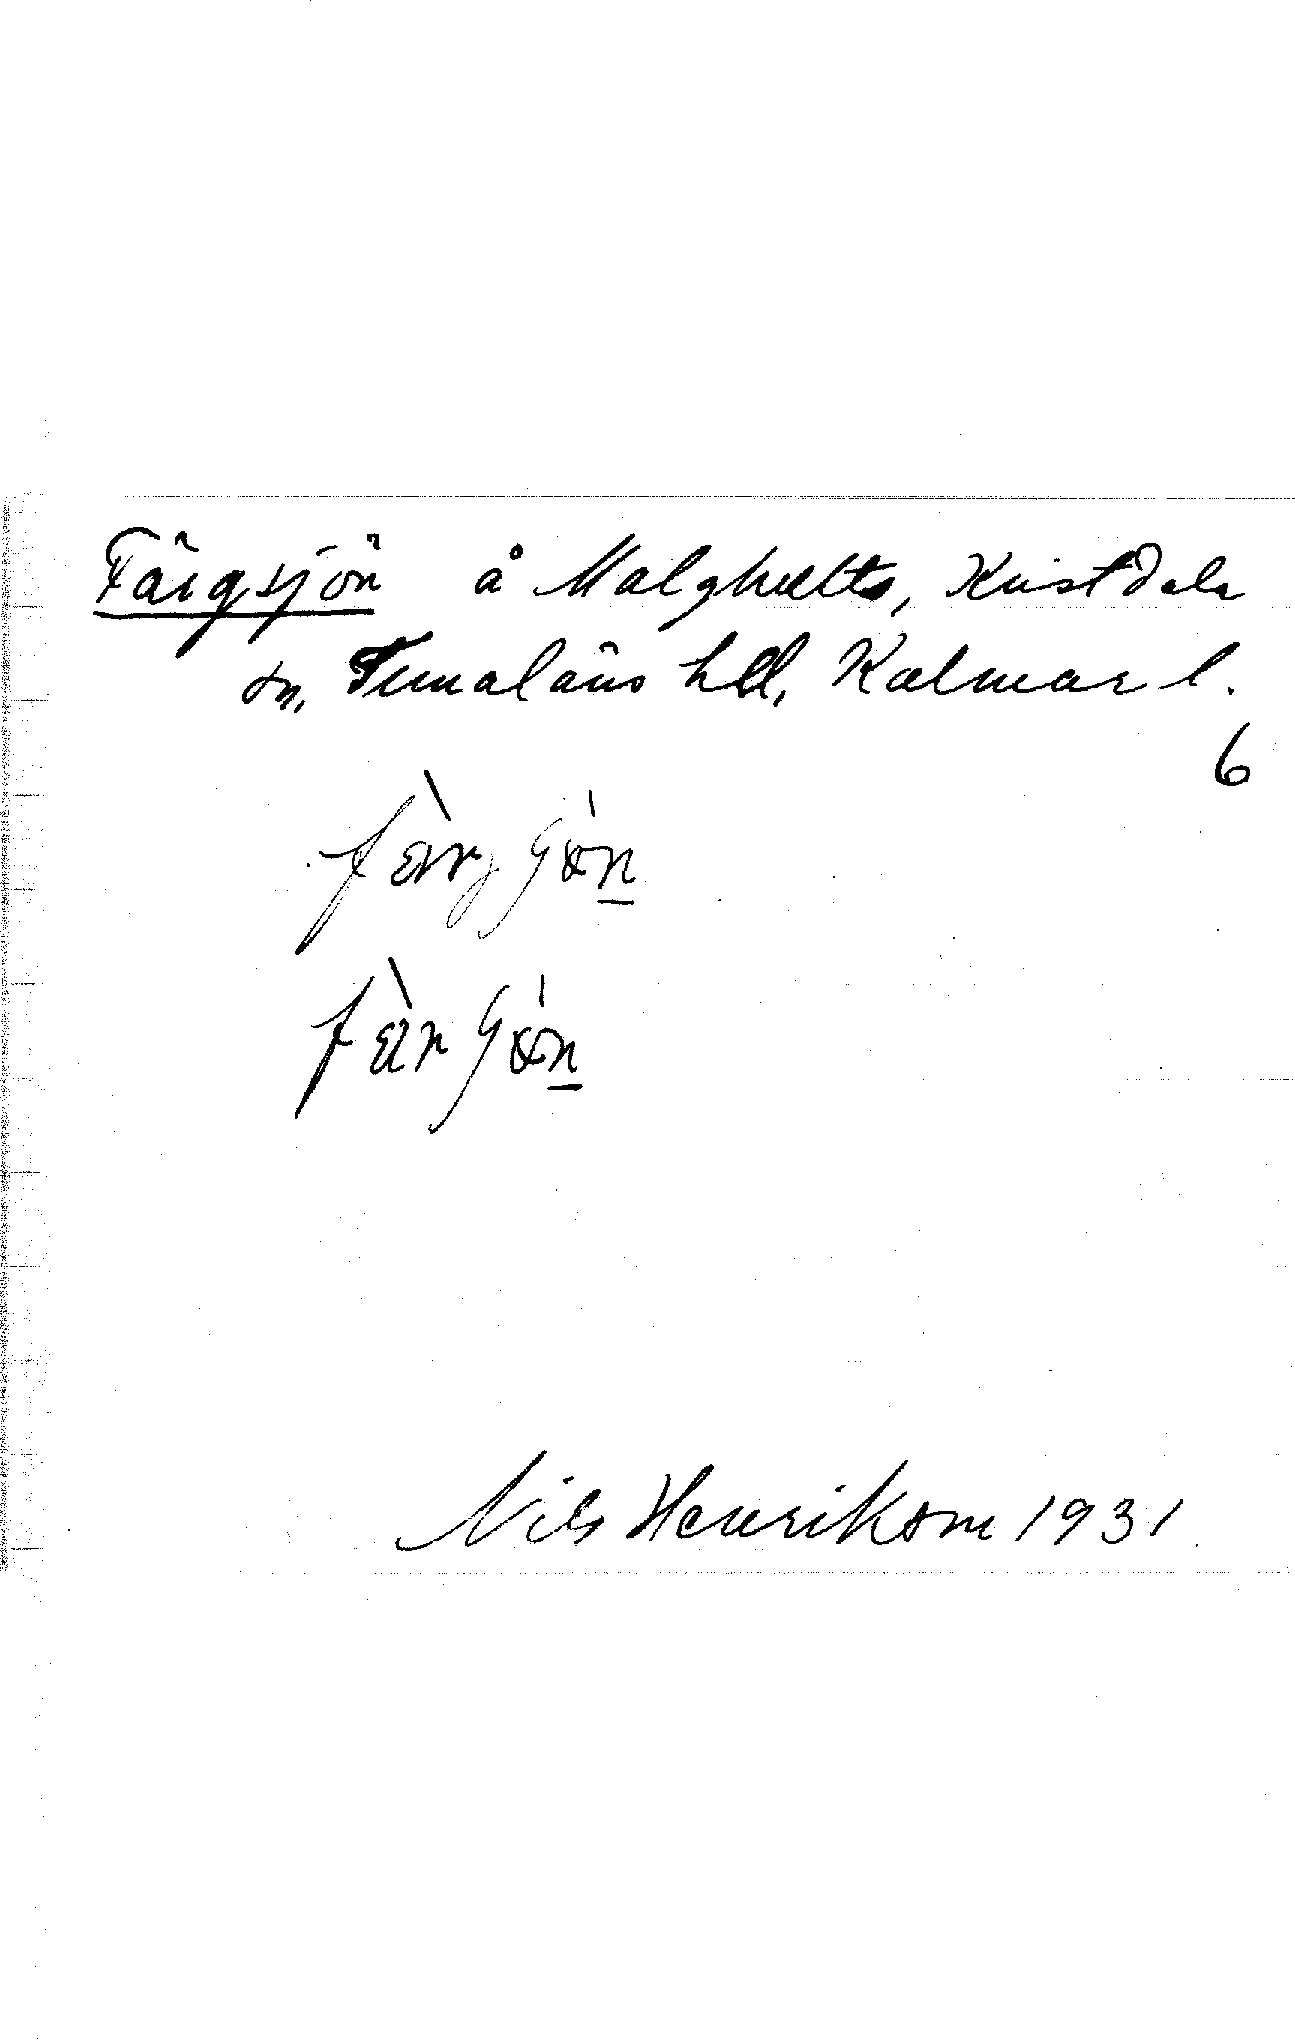 Färgsjön å Malghults, Kristdala
sn, Tunaläns hd, Kalmar l.
6
Nils Henrikson 1931